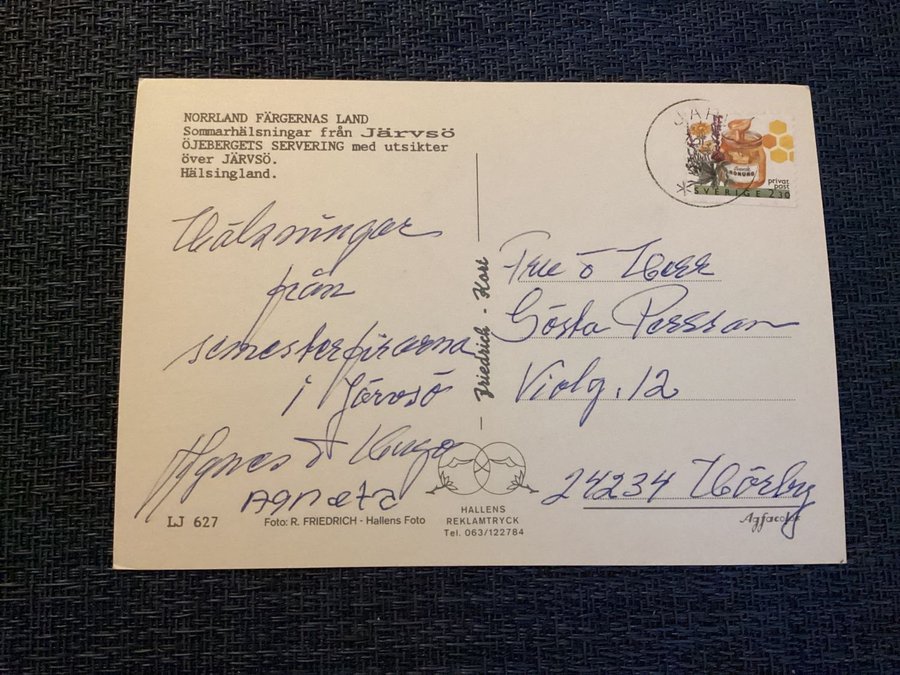 NORRLAND FÄRGERNAS LAND
Sommarhälsningar från Järvsö
ÖJEBERGETS SERVERING med utsikter
över JÄRVSÖ.
Hälsingland.
Hälsningar
från
semesterfirarna
i Järvsö
Agnes & Hugo
Agneta
LJ 627
Foto: R. FRIEDRICH - Hallens Foto
Friedrich - Kort
HALLENS
REKLAMTRYCK
Tel. 063/122784
privat
post
SVERIGE 2.30
Fru o Herr
Gösta Persson
Violg. 12
24234 Hörby
Agfacolor